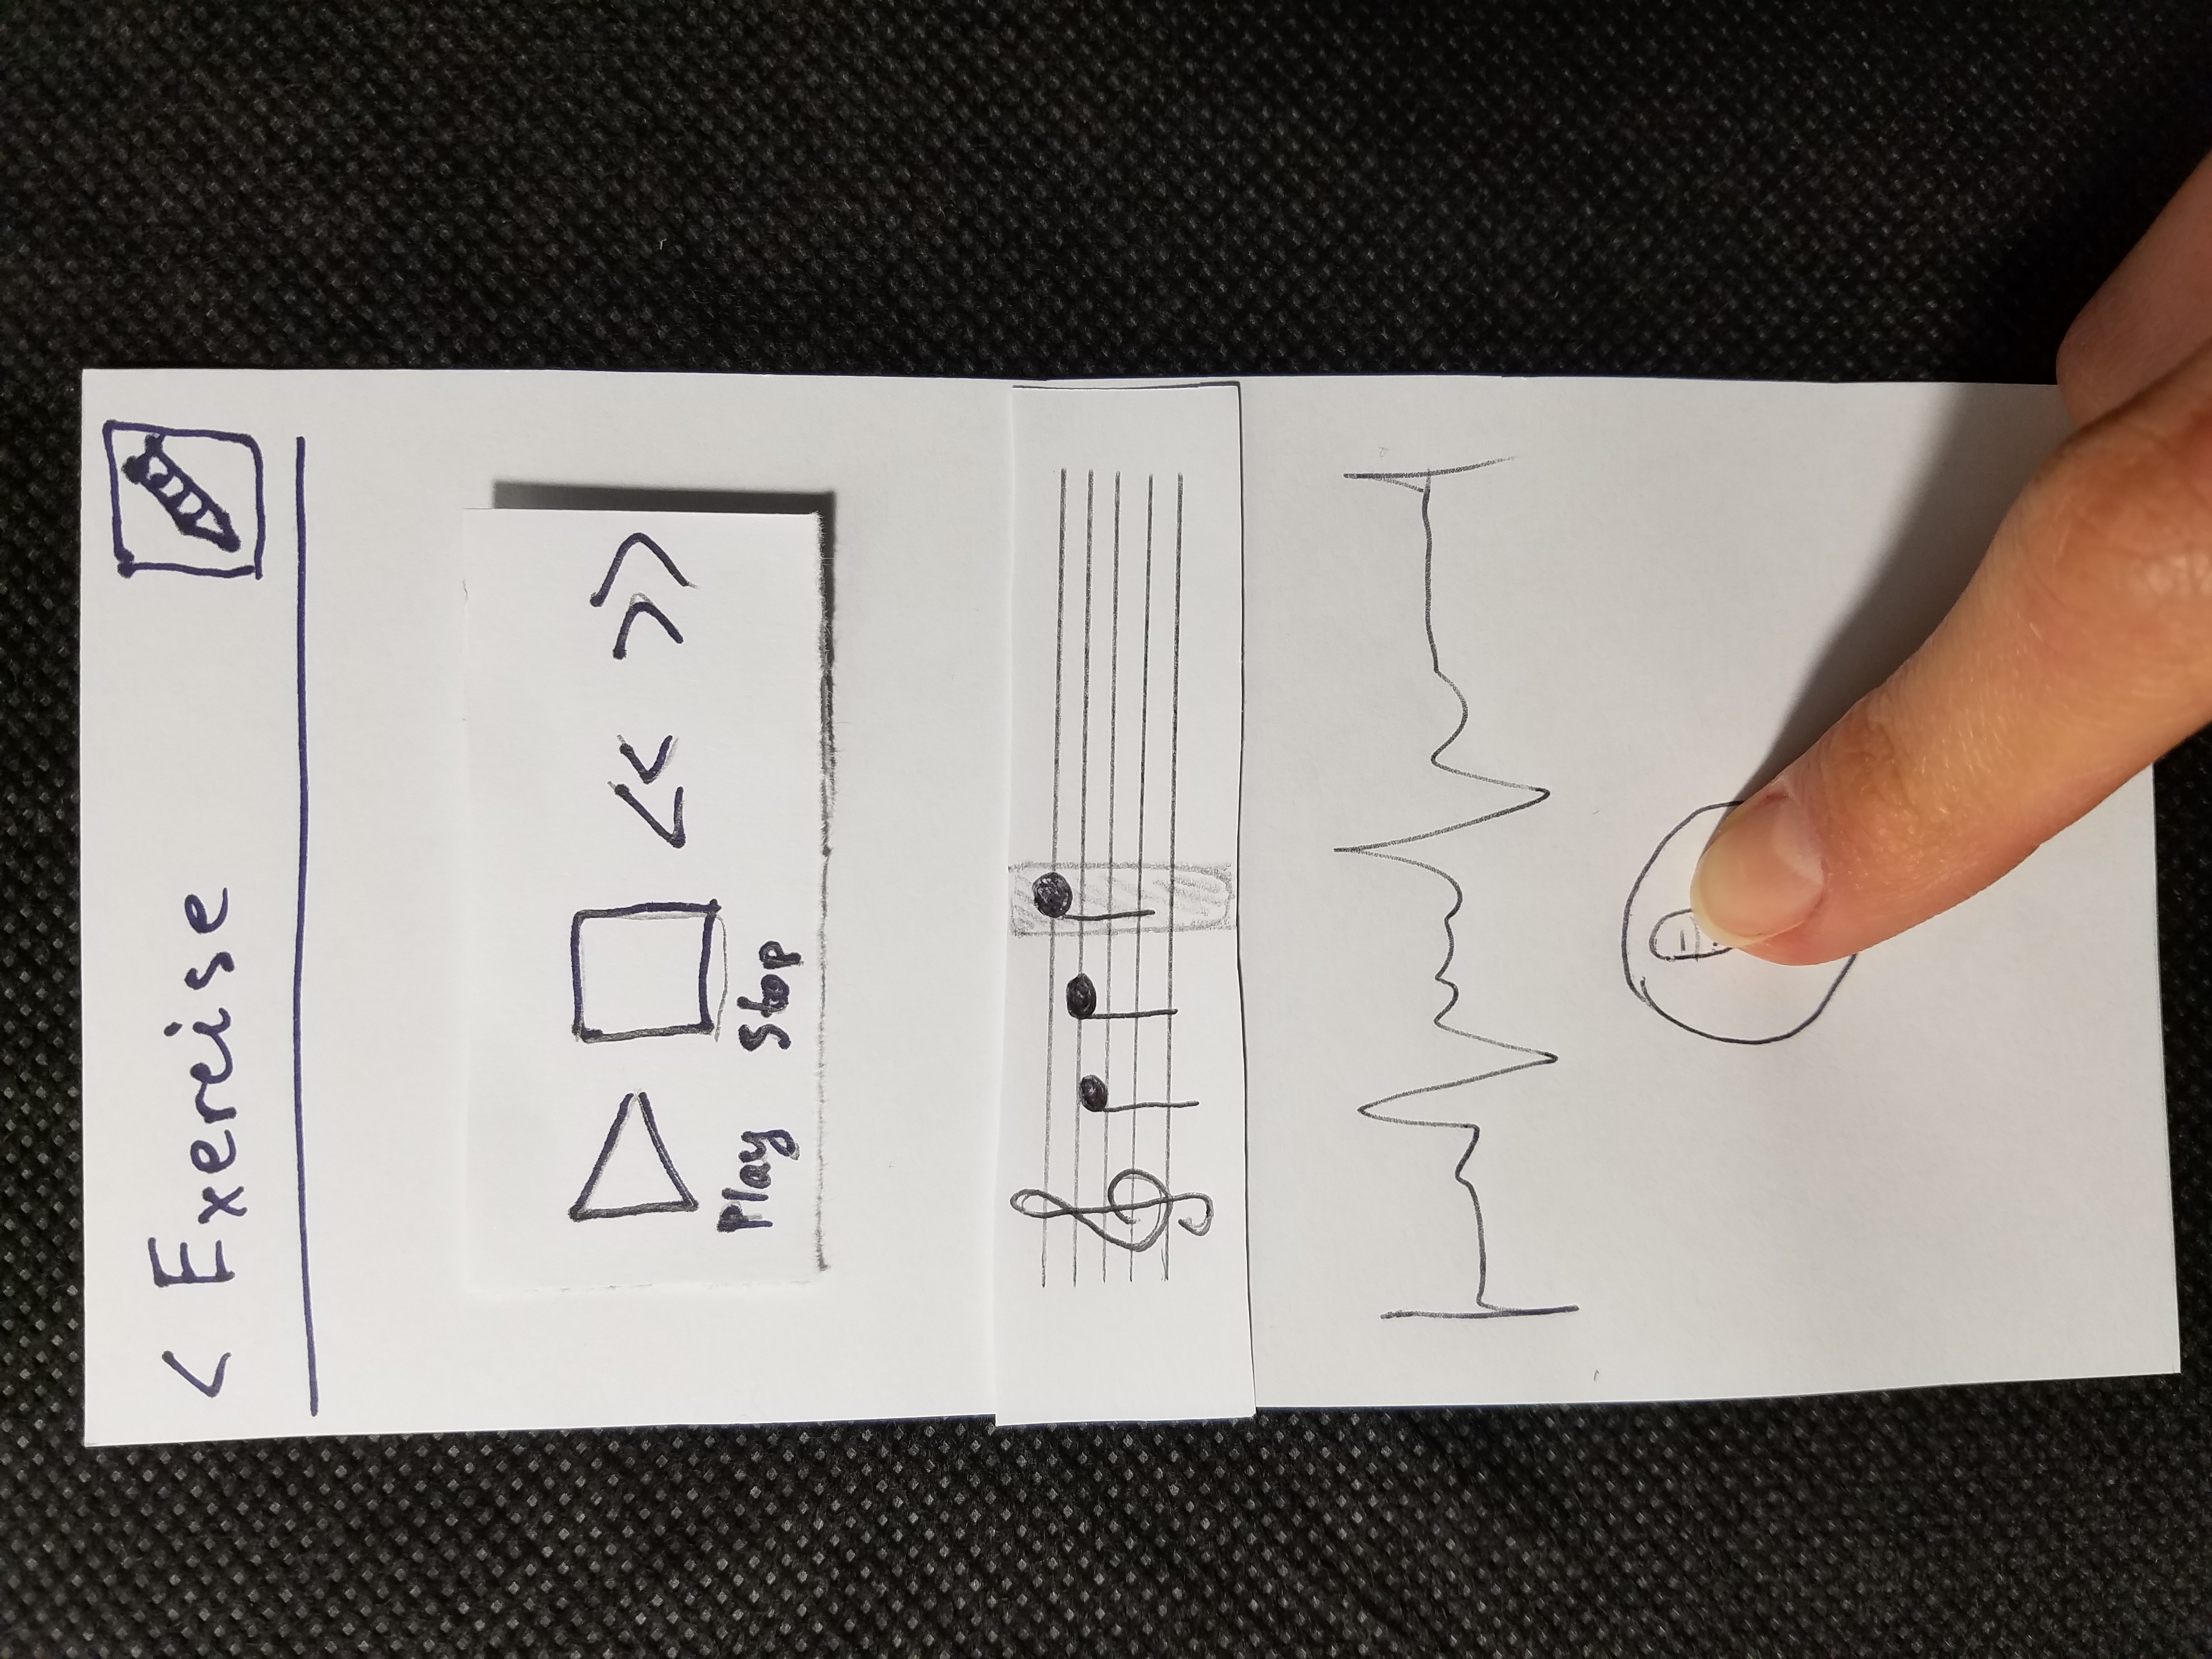 < Exercise
Play Stop << >>